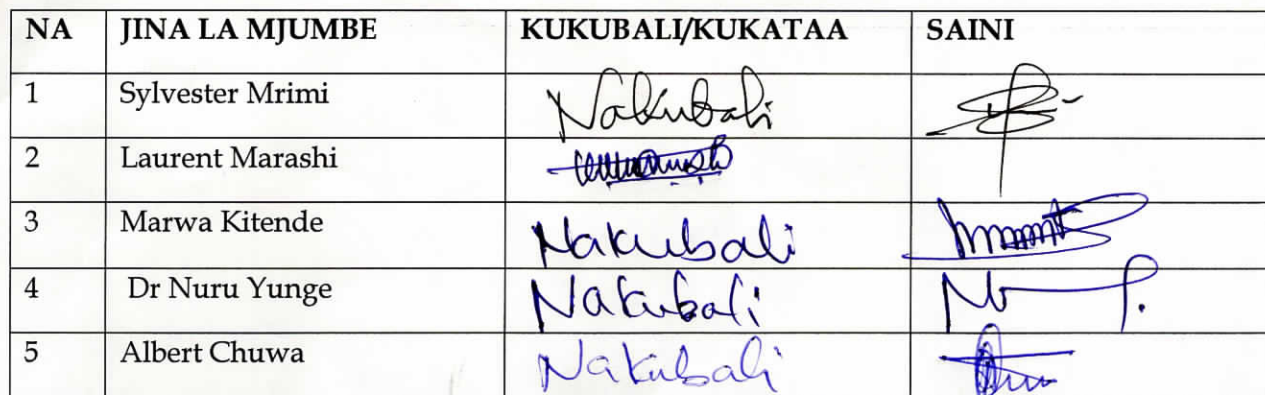 NA JINA LA MJUMBE KUKUBALI/KUKATAA SAINI
1 Sylvester Mrimi Nakubali
2 Laurent Marashi
3 Marwa Kitende Nakubali
4 Dr Nuru Yunge Nakubali
5 Albert Chuwa Nakubali